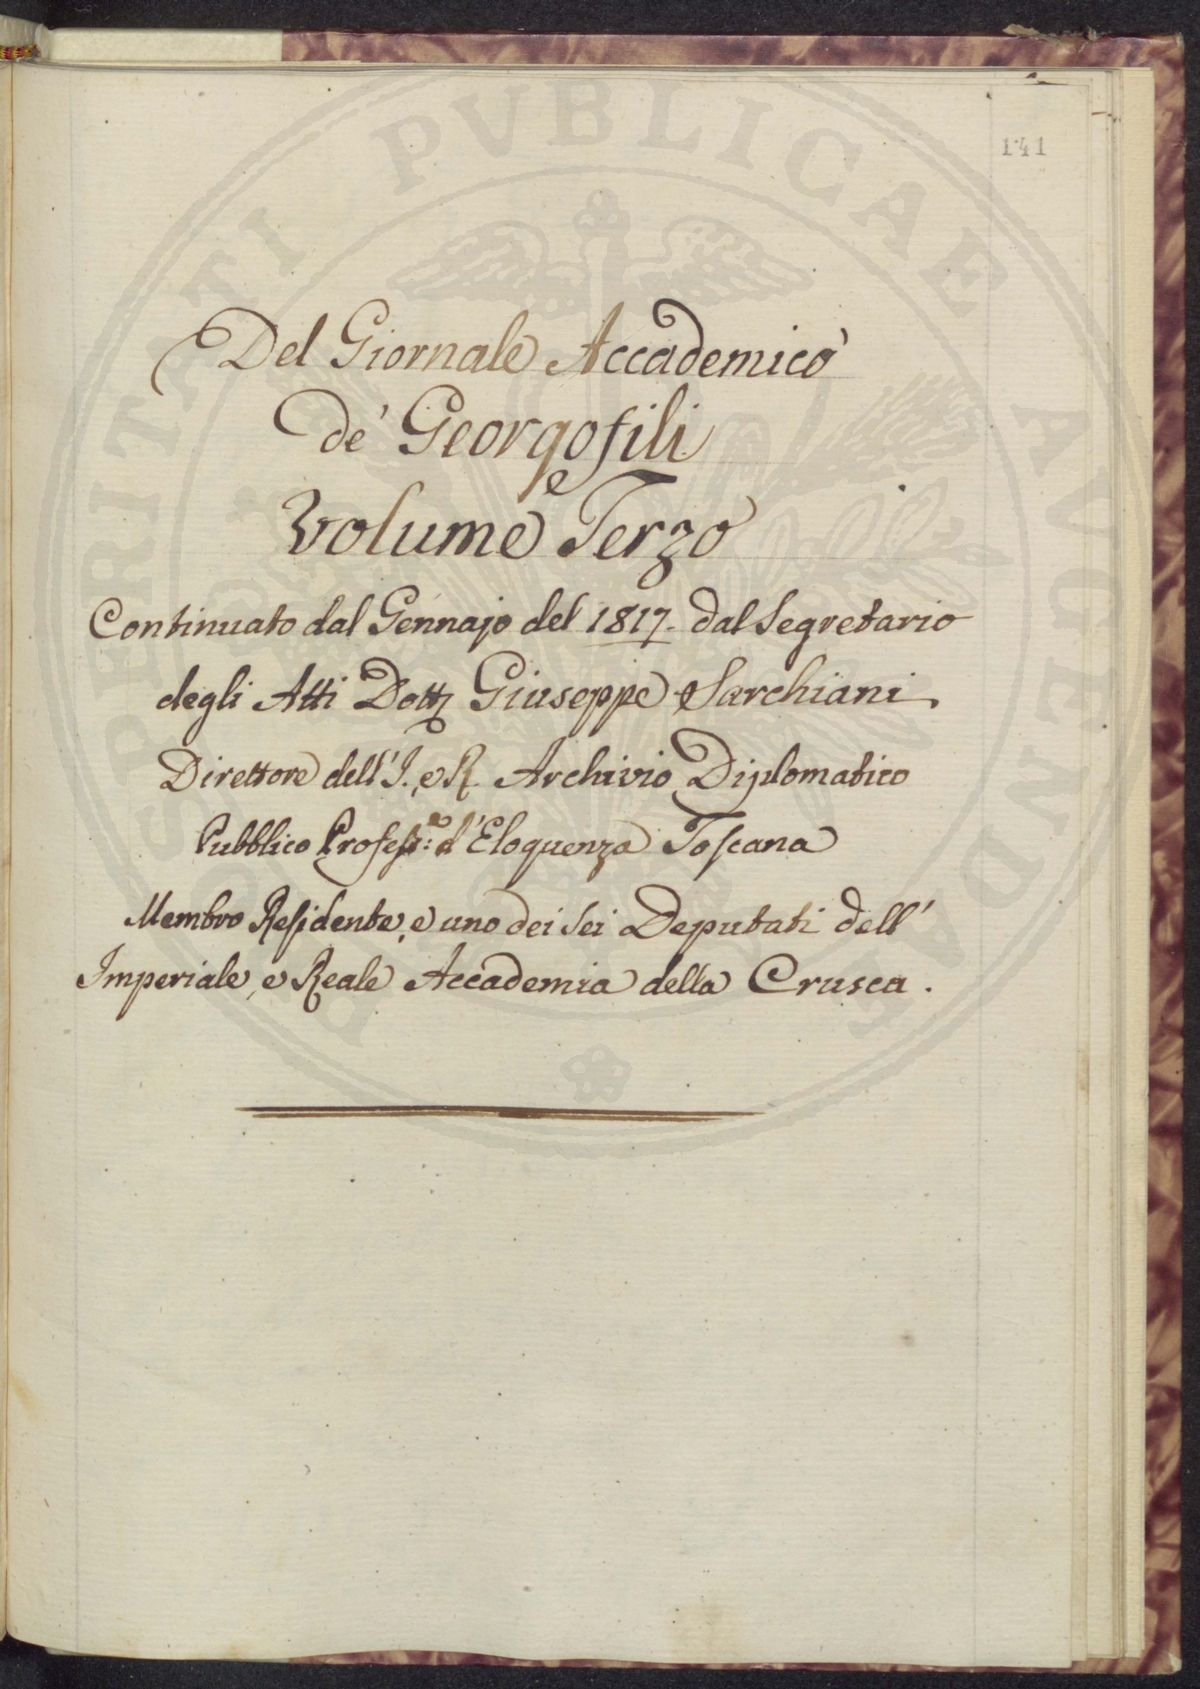 141
PROSPERITATI PVBLICAE AVGENDAE
Del Giornale Accademico
de' Georgofili
Volume Terzo
Continuato dal Gennajo del 1817. dal Segretario
degli Atti Dott. Giuseppe Sarchiani
Direttore dell'I. e R. Archivio Diplomatico
Pubblico Profess:e d'Eloquenza Toscana
Membro Residente, e uno dei sei Deputati dell'
Imperiale, e Reale Accademia della Crusca.